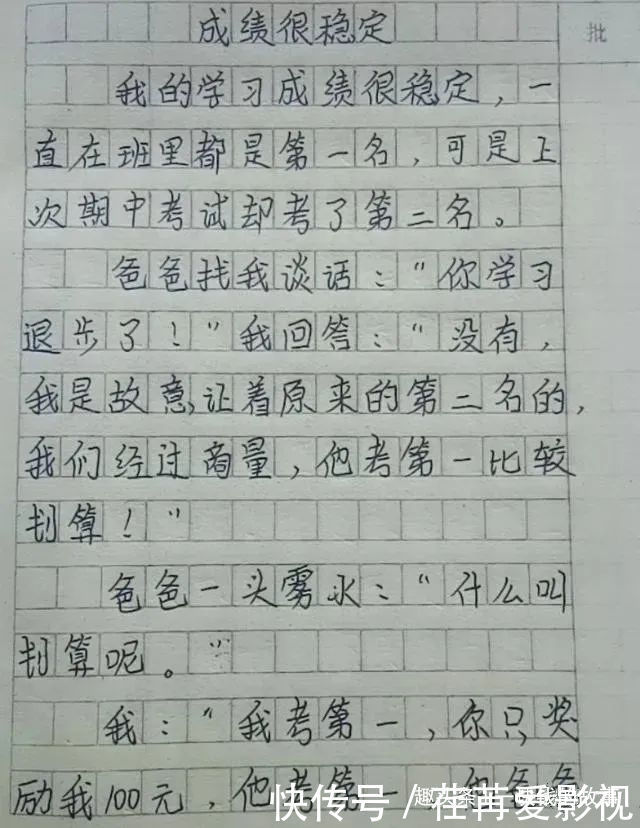 成绩很稳定
批
我的学习成绩很稳定，一
直在班里都是第一名，可是上
次期中考试却考了第二名。
爸爸找我谈话：“你学习
退步了！”我回答：“没有，
我是故意让着原来的第二名的，
我们经过商量，他考第一比较
划算！”
爸爸一头雾水：“什么叫
划算呢。”
我：“我考第一，你只奖
励我100元，他考第一，
快传号／荏苒爱影视